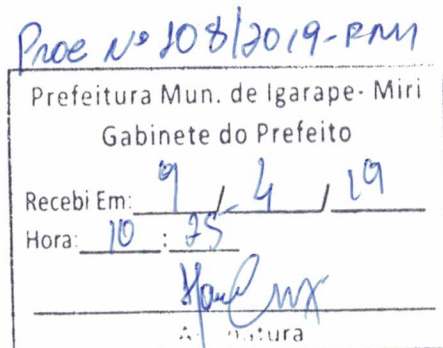 Proc Nº 108/2019-PMM
Prefeitura Mun. de Igarape- Miri
Gabinete do Prefeito
Recebi Em: 9 / 4 / 19
Hora: 10 : 25